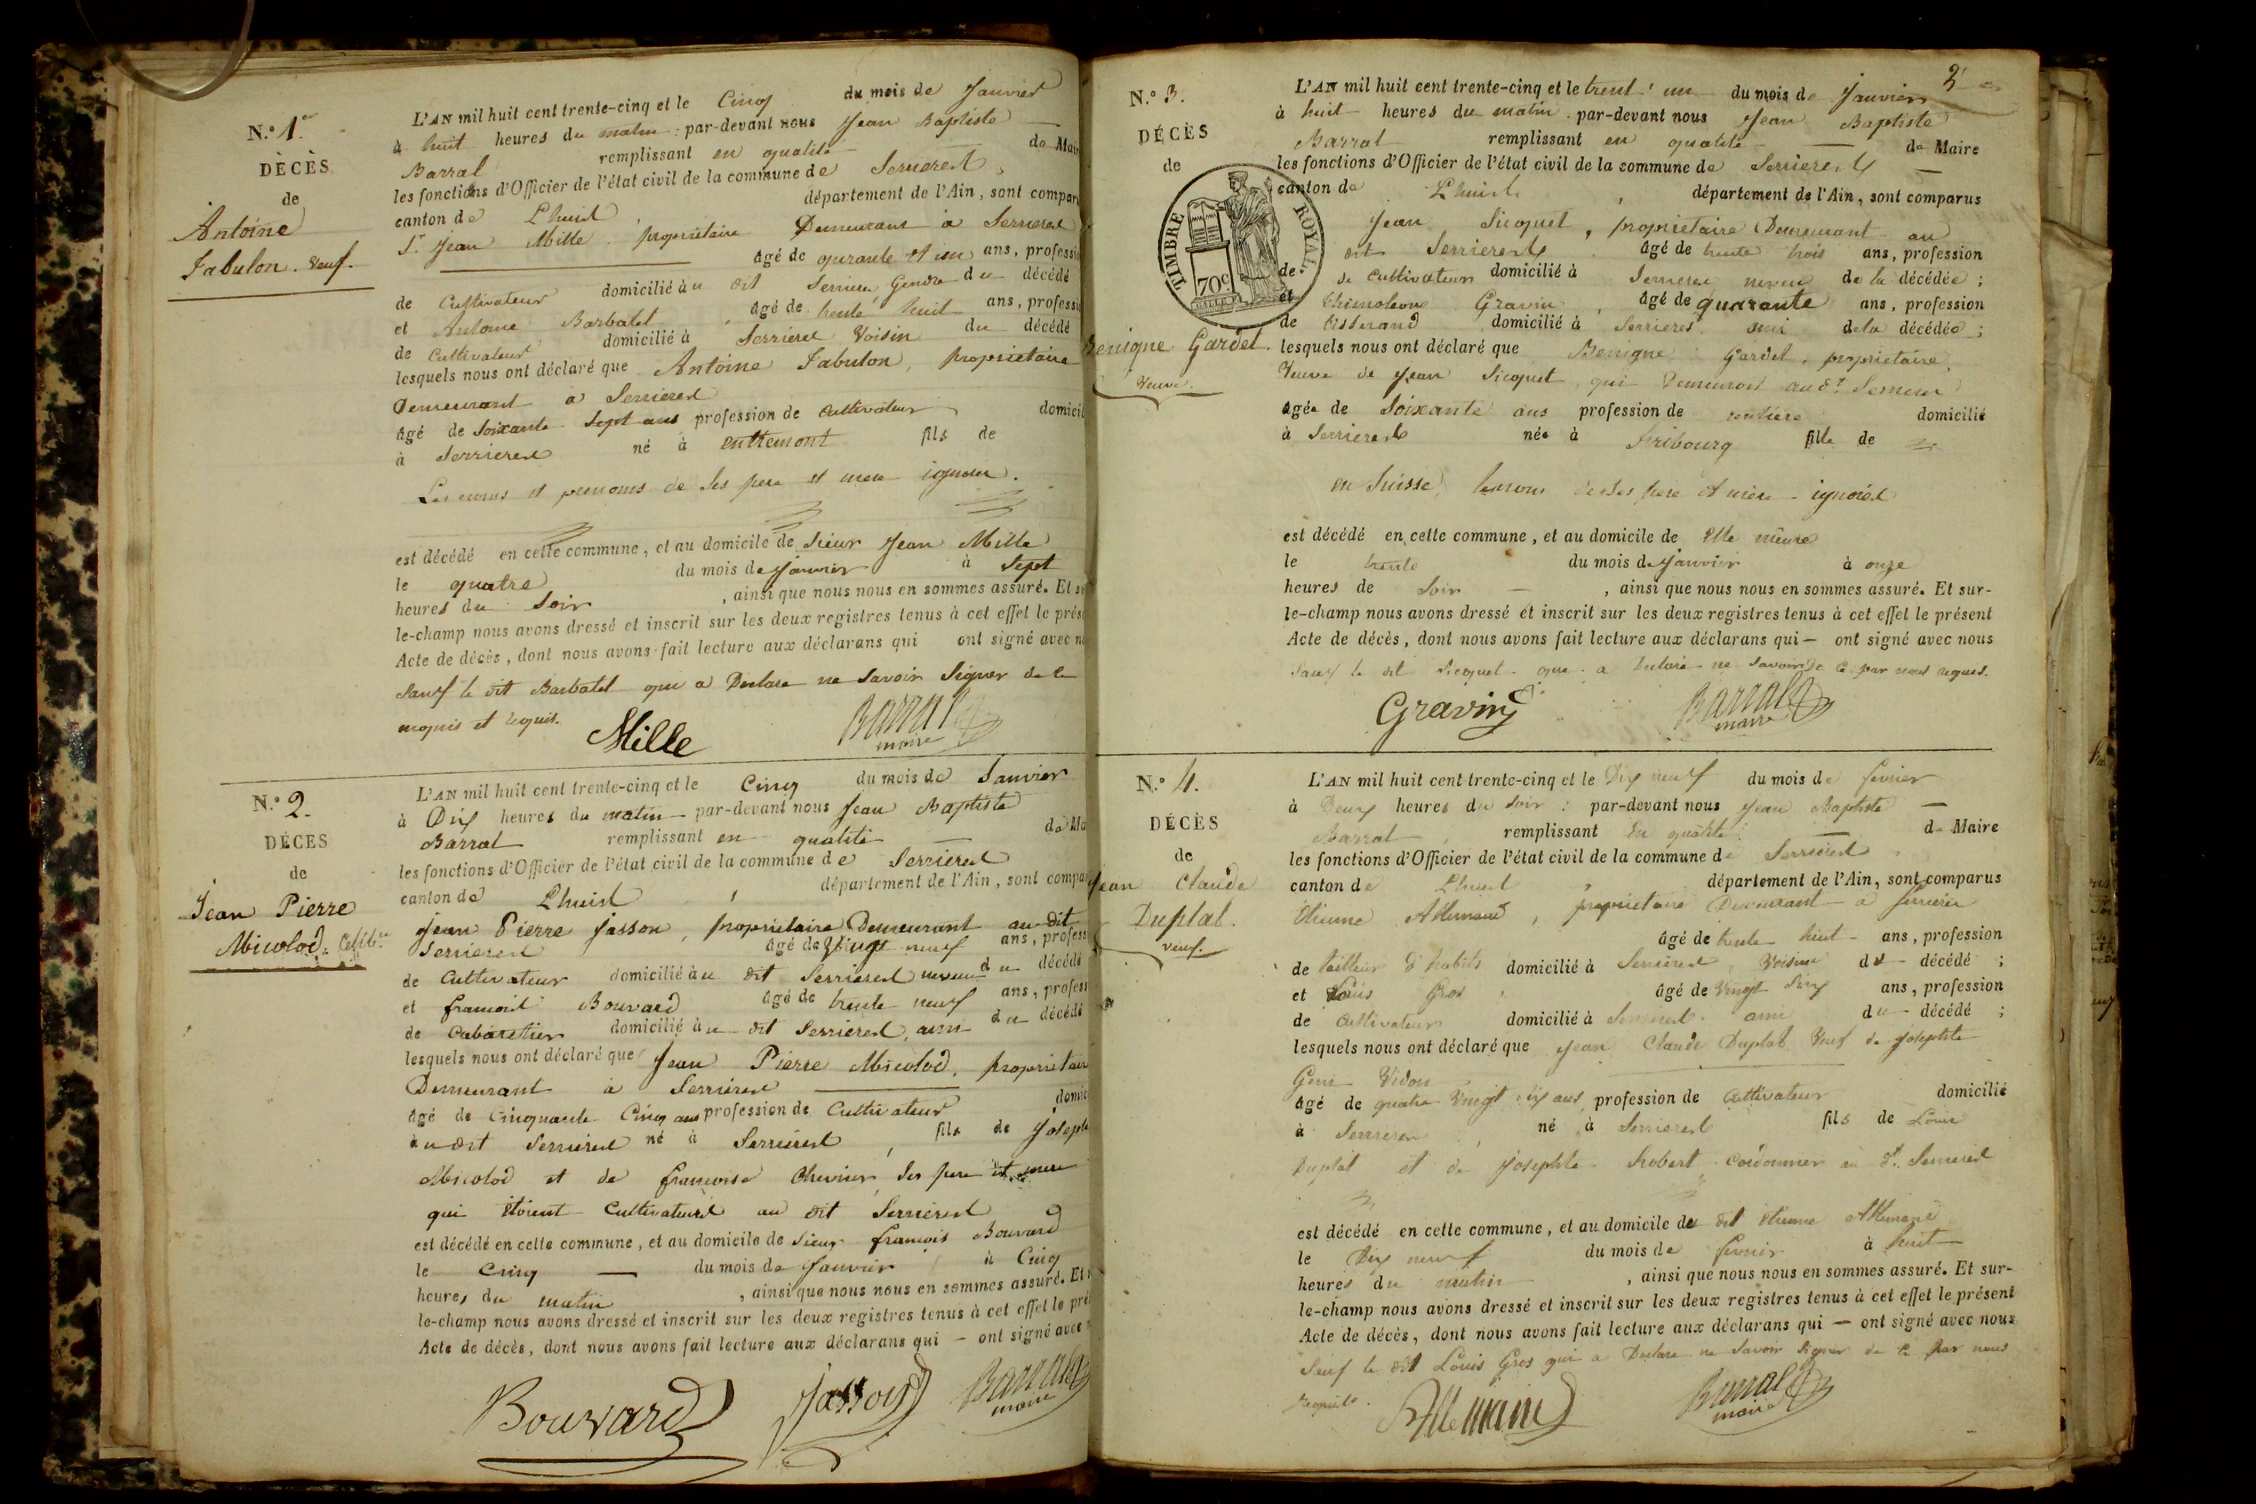 N.° 1.er
DÉCÈS
de
Antoine
Fabulon. veuf.
L'AN mil huit cent trente-cinq et le Cinq du mois de Janvier
à huit heures du matin : par-devant nous Jean Baptiste
Barral remplissant en qualité de Maire
les fonctions d'Officier de l'état civil de la commune de Serrieres,
canton de Lhuis, département de l'Ain, sont compar
Sr Jean Mille propriétaire Demeurant à Serrieres
âgé de quarante et un ans, professi
de Cultivateur domicilié au dit Serrieres Gendre du décédé
et Antoine Barbatel âgé de trente huit ans, professi
de Cultivateur domicilié à Serrieres Voisin du décédé
lesquels nous ont déclaré que Antoine Fabulon, propriétaire
Demeurant à Serrieres
âgé de Soixante Sept ans profession de Cultivateur domicil
à Serrieres né à entremont fils de
Les noms et prenoms de ses pere et mere ignorés.
est décédé en cette commune, et au domicile de Sieur Jean Mille
le quatre du mois de Janvier à Sept
heures du Soir, ainsi que nous nous en sommes assuré. Et su
le-champ nous avons dressé et inscrit sur les deux registres tenus à cet effet le prése
Acte de décès, dont nous avons fait lecture aux déclarans qui ont signé avec no
Sauf le dit Barbatel qui a Declare ne Savoir Signer de ce
enquis et requis.
Mille Barral
maire
N.° 2.
DÉCES
de
Jean Pierre
Micolod. Célib.re
L'AN mil huit cent trente-cinq et le Cinq du mois de Janvier
à Dix heures du matin par-devant nous Jean Baptiste
Barral remplissant en qualité de Ma
les fonctions d'Officier de l'état civil de la commune de Serrieres
canton de Lhuis, département de l'Ain, sont compar
Jean Pierre Jasson, propriétaire Demeurant au dit
Serrieres âgé de Vingt neuf ans, profess
de Cultivateur domicilié au dit Serrieres neveu du décédé
et francois Bouvard âgé de trente neuf ans, profess
de Cabaretier domicilié au dit Serrieres, ami du décédé
lesquels nous ont déclaré que Jean Pierre Micolod, propriétaire
Demeurant à Serrieres
âgé de Cinquante Cinq ans profession de Cultivateur domic
au dit Serrieres né à Serrieres, fils de Joseph
Micolod et de francoise Chevrier, Ses pere et mere
qui étoient Cultivateurs au dit Serrieres
est décédé en cette commune, et au domicile de Sieur francois Bouvard
le Cinq du mois de Janvier à Cinq
heures du matin, ainsi que nous nous en sommes assuré. Et
le-champ nous avons dressé et inscrit sur les deux registres tenus à cet effet le pré
Acte de décès, dont nous avons fait lecture aux déclarans qui — ont signé avec
Bouvard Jasson Barral
maire
2
N.° 3.
DÉCÈS
de
TIMBRE ROYAL
70c
Benigne Gardet.
Veuve.
L'AN mil huit cent trente-cinq et le trent'un du mois de Janvier
à huit heures du matin par-devant nous Jean Baptiste
Barral remplissant en qualité de Maire
les fonctions d'Officier de l'état civil de la commune de Serrieres
canton de Lhuis, département de l'Ain, sont comparus
Jean Sicoquet, propriétaire Demeurant au
dit Serrieres âgé de trente trois ans, profession
de Cultivateur domicilié à Serrieres neveu de la décédée ;
et Thimoleon Gravin, âgé de quarante ans, profession
de tisserand domicilié à Serrieres ami de la décédée ;
lesquels nous ont déclaré que Benigne Gardet, propriétaire,
Veuve de Jean Sicoquet, qui Demeuroit au dt Serrieres
âgée de Soixante ans profession de rentière domicilié
à Serrieres née à Fribourg fille de
en Suisse, les noms de Ses pere et mère ignorés
est décédé en cette commune, et au domicile de Elle même
le trente du mois de Janvier à onze
heures de Soir —, ainsi que nous nous en sommes assuré. Et sur-
le-champ nous avons dressé et inscrit sur les deux registres tenus à cet effet le présent
Acte de décès, dont nous avons fait lecture aux déclarans qui — ont signé avec nous
Sauf le dit Sicoquet que a Declaré ne Savoir de ce par nous requis.
Gravin Barral
maire
N.° 4.
DÉCÈS
de
Jean Claude
Duplat.
veuf.
L'AN mil huit cent trente-cinq et le Dix neuf du mois de fevrier
à Deux heures du Soir : par-devant nous Jean Baptiste
Barral, remplissant En qualité de Maire
les fonctions d'Officier de l'état civil de la commune de Serrieres
canton de Lhuis, département de l'Ain, sont comparus
Etienne Allemand, propriétaire Demeurant à Serrieres
âgé de trente huit ans, profession
de tailleur d'habits domicilié à Serrieres, Voisin du décédé ;
et Louis Gros, âgé de Vingt Six ans, profession
de Cultivateur domicilié à Serrieres ami du décédé ;
lesquels nous ont déclaré que Jean Claude Duplat Veuf de Josephte
Vidon
âgé de quatre Vingt dix ans profession de Cultivateur domicilié
à Serrieres, né à Serrieres fils de Louis
Duplat et de Josephte Robert Cordonnier au dt. Serrieres
est décédé en cette commune, et au domicile de dit Etienne Allemand
le Dix neuf du mois de fevrier à huit
heures du matin, ainsi que nous nous en sommes assuré. Et sur-
le-champ nous avons dressé et inscrit sur les deux registres tenus à cet effet le présent
Acte de décès, dont nous avons fait lecture aux déclarans qui — ont signé avec nous
Sauf le dit Louis Gros qui a Declare ne Savoir Signer de ce par nous
requis.
Allemand Barral
maire